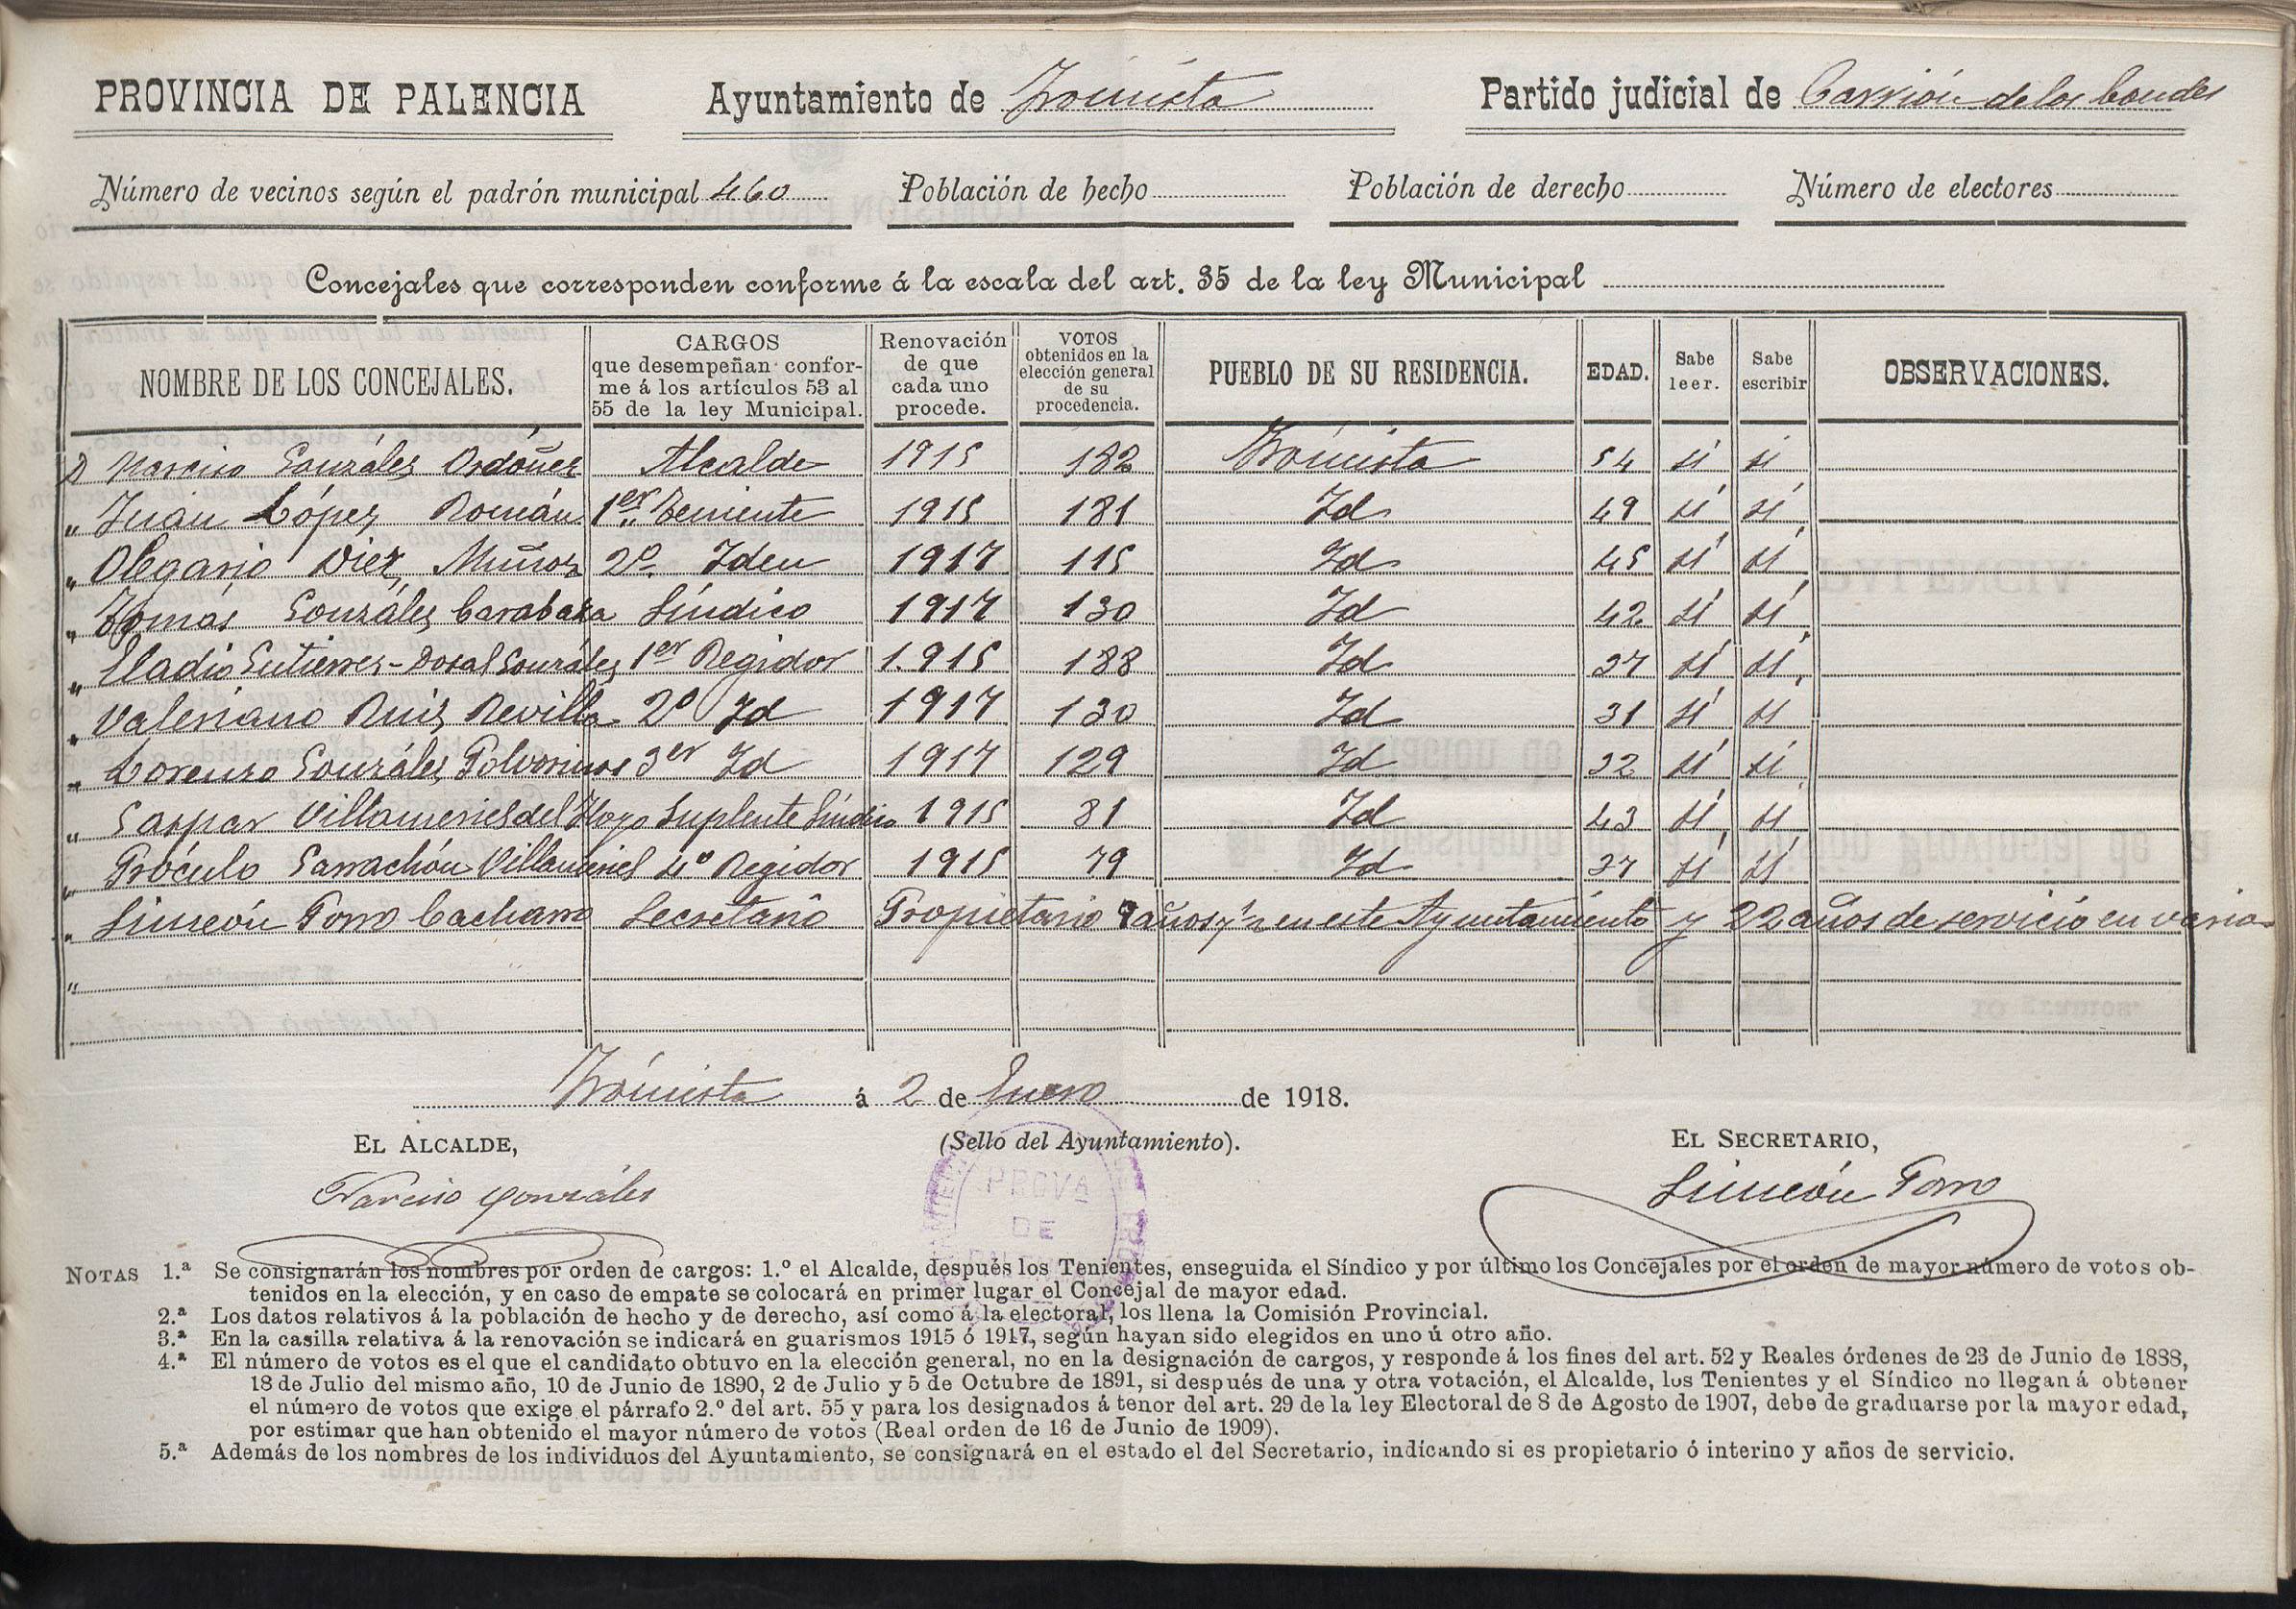 PROVINCIA DE PALENCIA Ayuntamiento de Frómista Partido judicial de Carrión de los Condes
Número de vecinos según el padrón municipal 460 Población de hecho Población de derecho Número de electores
Concejales que corresponden conforme á la escala del art. 35 de la ley Municipal
NOMBRE DE LOS CONCEJALES. CARGOS que desempeñan confor- me á los artículos 53 al 55 de la ley Municipal. Renovación de que cada uno procede. VOTOS obtenidos en la elección general de su procedencia. PUEBLO DE SU RESIDENCIA. EDAD. Sabe leer. Sabe escribir OBSERVACIONES.
D Narciso González Ordóñez Alcalde 1915 182 Frómista 54 sí sí
" Juan López Román 1er Teniente 1915 181 Id 49 sí sí
" Olegario Diez Muñoz 2º Idem 1917 115 Id 45 sí sí
" Tomás González Carabaza Síndico 1917 130 Id 42 sí sí
" Eladio Gutierrez-Dosal González 1er Regidor 1915 188 Id 37 sí sí
" Valeriano Ruiz Revilla 2º Id 1917 130 Id 31 sí sí
" Lorenzo González Polvorinos 3er Id 1917 129 Id 32 sí sí
" Gaspar Villameriel del Hoyo Suplente Síndico 1915 81 Id 43 sí sí
" Próculo Garrachón Villameriel 4º Regidor 1915 79 Id 37 sí sí
" Simeón Porro Cacharro Secretario Propietario 9 años y ½ en este Ayuntamiento y 22 años de servicio en varios
"
Frómista á 2 de Enero de 1918.
EL ALCALDE, (Sello del Ayuntamiento). EL SECRETARIO,
Narciso González Simeón Porro
PROVA
DE
NOTAS 1.ª Se consignarán los nombres por orden de cargos: 1.º el Alcalde, después los Tenientes, enseguida el Síndico y por último los Concejales por el orden de mayor número de votos ob-
tenidos en la elección, y en caso de empate se colocará en primer lugar el Concejal de mayor edad.
2.ª Los datos relativos á la población de hecho y de derecho, así como á la electoral, los llena la Comisión Provincial.
3.ª En la casilla relativa á la renovación se indicará en guarismos 1915 ó 1917, según hayan sido elegidos en uno ú otro año.
4.ª El número de votos es el que el candidato obtuvo en la elección general, no en la designación de cargos, y responde á los fines del art. 52 y Reales órdenes de 23 de Junio de 1888,
18 de Julio del mismo año, 10 de Junio de 1890, 2 de Julio y 5 de Octubre de 1891, si después de una y otra votación, el Alcalde, los Tenientes y el Síndico no llegan á obtener
el número de votos que exige el párrafo 2.º del art. 55 y para los designados á tenor del art. 29 de la ley Electoral de 8 de Agosto de 1907, debe de graduarse por la mayor edad,
por estimar que han obtenido el mayor número de votos (Real orden de 16 de Junio de 1909).
5.ª Además de los nombres de los individuos del Ayuntamiento, se consignará en el estado el del Secretario, indicando si es propietario ó interino y años de servicio.